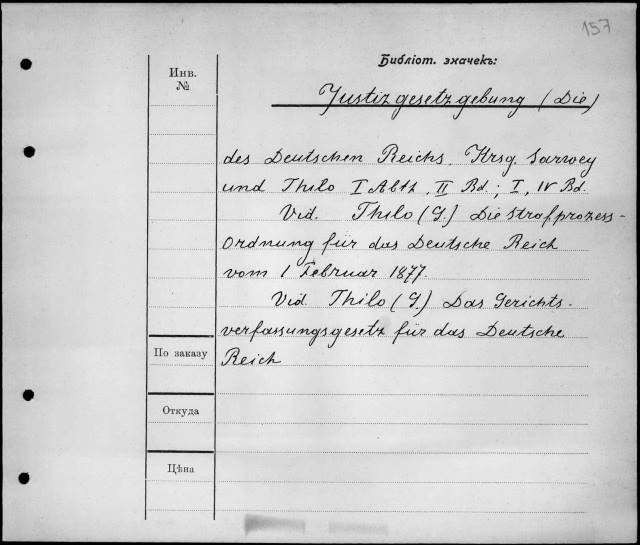 157
Библіот. значекъ:
Инв.
№
Justizgesetzgebung (Die)
des Deutschen Reichs. Hrsg. Sarwey
und Thilo I Abth. II Bd.; I, IV Bd.
Vid. Thilo (G.) Die Strafprozess-
Ordnung für das Deutsche Reich
vom 1 Februar 1877.
Vid. Thilo (G.) Das Gerichts-
verfassungsgesetz für das Deutsche
Reich
По заказу
Откуда
Цѣна